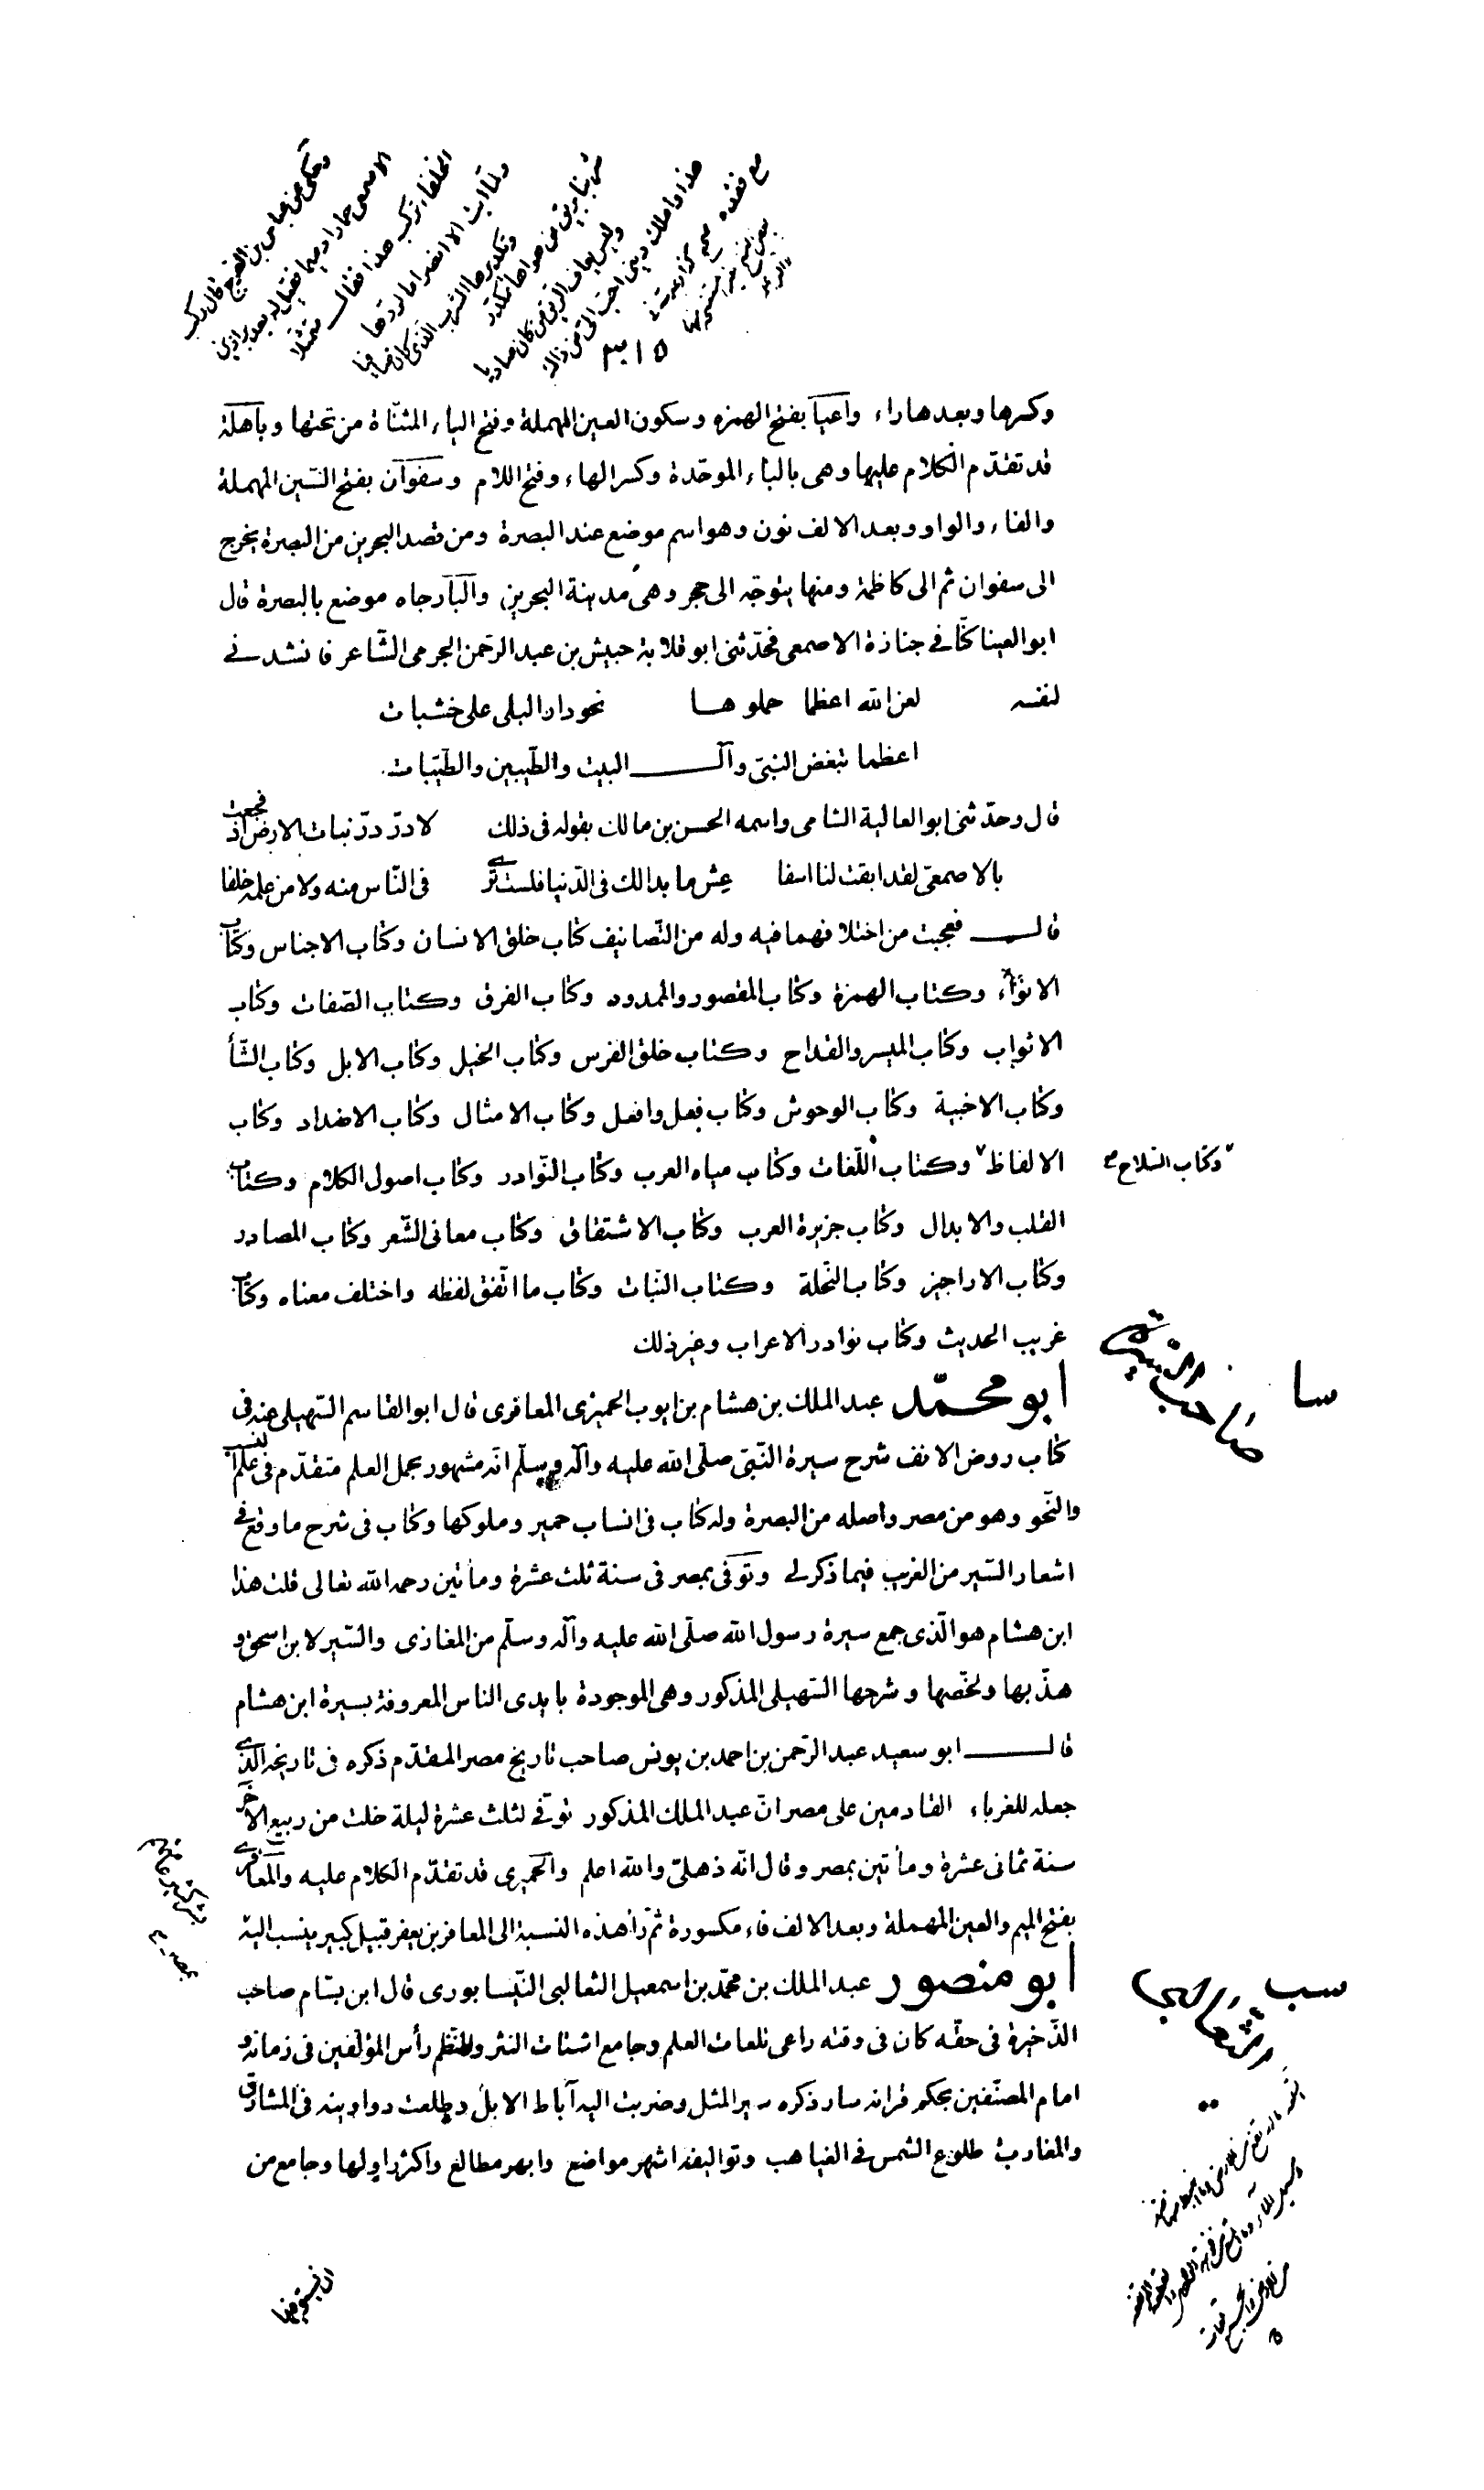 وحكى عن عباس بن الفرج قال ركب
الاصمعى حمارا دميما فقيل له بعد براذين
الخلفاء تركب هذا فقال متمثلا
ولما ابت الا انصراما لودها
وتكديرها الشرب الذى كان صافيا
شربنا برنق من هواها مكدر
وليس يعاف الرنق من كان صاديا
هذا واملك دينى احب الى من ذاك
مع فقده صح
وكسرها وبعدها راء واعيا بفتح الهمزه وسكون العين المهملة وفتح الياء المثنّاة من تحتها وباهلة
قد تقدّم الكلام عليها وهى بالباء الموحّدة وكسر الهاء وفتح اللام وسفوان بفتح السّين المهملة
والفاء والواو وبعد الالف نون وهو اسم موضع عند البصرة ومن قصد البحرين من البصرة يخرج
الى سفوان ثم الى كاظمة ومنها يتوجّه الى هجر وهى مدينة البحرين والبارجاه موضع بالبصرة قال
ابو العينا كنّا فى جنازة الاصمعى فحدّثنى ابو قلابة حبيش بن عبد الرّحمن الجرمى الشّاعر فانشدنى
لنفسه لعن الله اعظما حملوها نحو دار البلى على خشبات
اعظما تبغض النبىّ وآل البيت والطّيبين والطّيّبات
قال وحدّثنى ابو العالية الشامى واسمه الحسن بن مالك بقوله فى ذلك لا درّ درّ نبات الارض اذ فجعت
بالاصمعىّ لقد ابقت لنا اسفا عِش ما بدا لك فى الدّنيا فلست ترى فى النّاس منه ولا من علمه خلفا
قال فعجبت من اختلافهما فيه وله من التّصانيف كتاب خلق الانسان وكتاب الاجناس وكتاب
الانوآء وكتاب الهمزة وكتاب المقصور والممدود وكتاب الفرق وكتاب الصّفات وكتاب
الاثواب وكتاب الميسر والقداح وكتاب خلق الفرس وكتاب الخيل وكتاب الابل وكتاب الشّأ
وكتاب الاخبية وكتاب الوحوش وكتاب فعل وافعل وكتاب الامثال وكتاب الاضداد وكتاب
الالفاظ وكتاب اللّغات وكتاب مياه العرب وكتاب النّوادر وكتاب اصول الكلام وكتاب
وكتاب السّلاح صح
القلب والابدال وكتاب جزيرة العرب وكتاب الاشتقاق وكتاب معانى الشّعر وكتاب المصادر
وكتاب الاراجيز وكتاب النّحلة وكتاب النّبات وكتاب ما اتّفق لفظه واختلف معناه وكتاب
غريب الحديث وكتاب نوادر الاعراب وغير ذلك
سا صاحب السيرة
ابو محمّد عبد الملك بن هشام بن ايوب الحميرى المعافرى قال ابو القاسم السّهيلى عنه فى
كتاب روض الانف شرح سيرة النّبىّ صلّى الله عليه وآله وسلّم انّه مشهور بحمل العلم متقدّم فى علم النسب
والنّحو وهو من مصر واصله من البصرة وله كتاب فى انساب حمير وملوكها وكتاب فى شرح ما وقع فى
اشعار السّير من الغريب فيما ذكر لى وتوفّى بمصر فى سنة ثلث عشرة ومأتين رحمه الله تعالى قلت هذا
ابن هشام هو الّذى جمع سيرة رسول الله صلّى الله عليه وآله وسلّم من المغازى والسّير لابن اسحق و
هذّبها ولخّصها وشرحها السّهيلى المذكور وهى الموجودة بايدى الناس المعروفة بسيرة ابن هشام
قال ابو سعيد عبد الرّحمن بن احمد بن يونس صاحب تاريخ مصر المقدّم ذكره فى تاريخه الّذى
جعله للغرباء القادمين على مصر انّ عبد الملك المذكور توفّى لثلث عشرة ليلة خلت من ربيع الاخر
سنة ثمانى عشرة ومأتين بمصر وقال انّه ذهلىّ والله اعلم والحميرى قد تقدّم الكلام عليه والمعافرى
بفتح الميم والعين المهملة وبعد الالف فاء مكسورة ثمّ رأ هذه النسبة الى المعافر بن يعفر قبيل كبير ينسب اليه
بشر كثير عامّتهم
بمصر
سب الثعالبى
ابو منصور عبد الملك بن محمّد بن اسمعيل الثعالبى النّيسابورى قال ابن بسّام صاحب
الذّخيرة فى حقّه كان فى وقته راعى تلعات العلم وجامع اشتات النثر والنّظم رأس المؤلّفين فى زمانه و
امام المصنّفين بحكم قرانه سار ذكره سير المثل وضربت اليه آباط الابل وطلعت دواوينه فى المشارق
والمغارب طلوع الشمس فى الغياهب وتواليفه اشهر مواضع وابهر مطالع واكثر راو لها وجامع من
ان يستوفيها